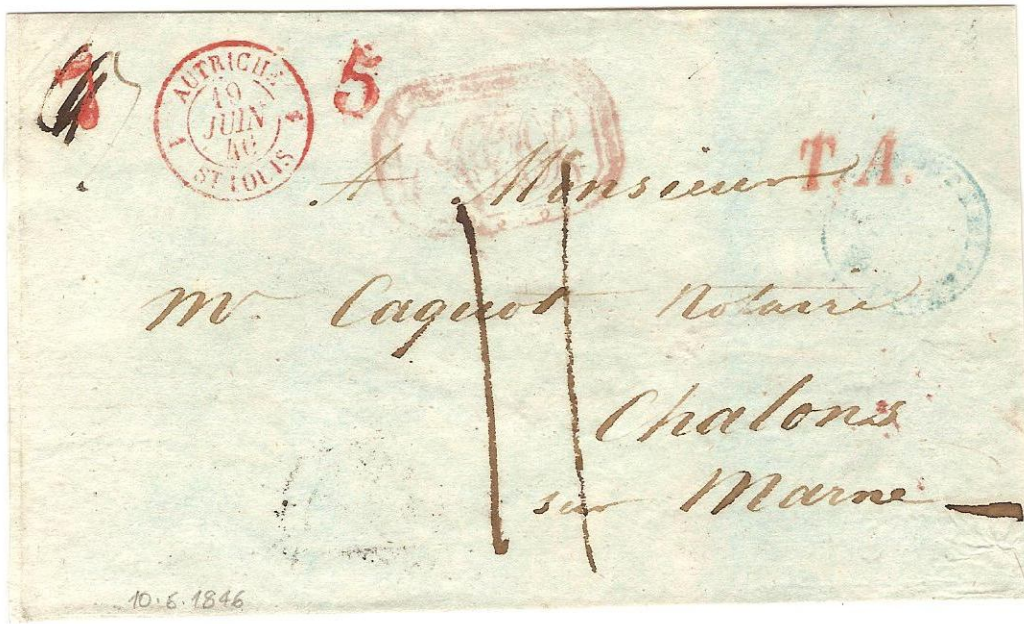 1 AUTRICHE
19
JUIN
46
ST LOUIS
5
T. A.
A Monsieur
Mr Caquot Notaire
Chalons
sur Marne
11
10.6.1846